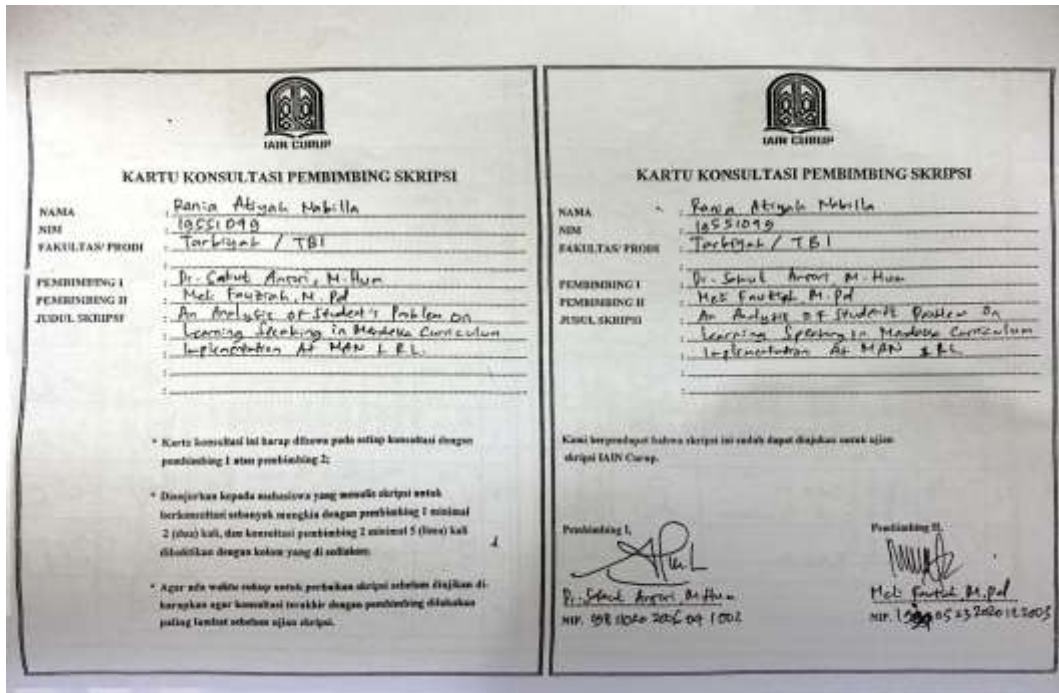 IAIN CURUP
KARTU KONSULTASI PEMBIMBING SKRIPSI
NAMA : Rania Atiyah Nabilla
NIM : 19551099
FAKULTAS/ PRODI : Tarbiyah / TBI
PEMBIMBING I : Dr. Sakut Ansori, M.Hum
PEMBIMBING II : Meli Fauziah, M.Pd
JUDUL SKRIPSI : An Analysis of Student's Problem on
Learning Speaking in Merdeka Curriculum
Implementation At MAN 1 RL.
* Kartu konsultasi ini harap dibawa pada setiap konsultasi dengan
pembimbing 1 atau pembimbing 2;
* Dianjurkan kepada mahasiswa yang menulis skripsi untuk
berkonsultasi sebanyak mungkin dengan pembimbing 1 minimal
2 (dua) kali, dan konsultasi pembimbing 2 minimal 5 (lima) kali
dibuktikan dengan kolom yang di sediakan;
* Agar ada waktu cukup untuk perbaikan skripsi sebelum diujikan di-
harapkan agar konsultasi terakhir dengan pembimbing dilakukan
paling lambat sebelum ujian skripsi.
IAIN CURUP
KARTU KONSULTASI PEMBIMBING SKRIPSI
NAMA : Rania Atiyah Nabilla
NIM : 19551099
FAKULTAS/ PRODI : Tarbiyah / TBI
PEMBIMBING I : Dr. Sakut Ansori M.Hum
PEMBIMBING II : Meli Fauziah, M.Pd
JUDUL SKRIPSI : An Analysis of Student's Problem On
Learning Speaking in Merdeka Curriculum
Implementation At MAN 1 RL
Kami berpendapat bahwa skripsi ini sudah dapat diajukan untuk ujian
skripsi IAIN Curup.
Pembimbing I,
Dr. Sakut Ansori M.Hum
NIP.
Pembimbing II,
Meli Fauziah, M.Pd
NIP.